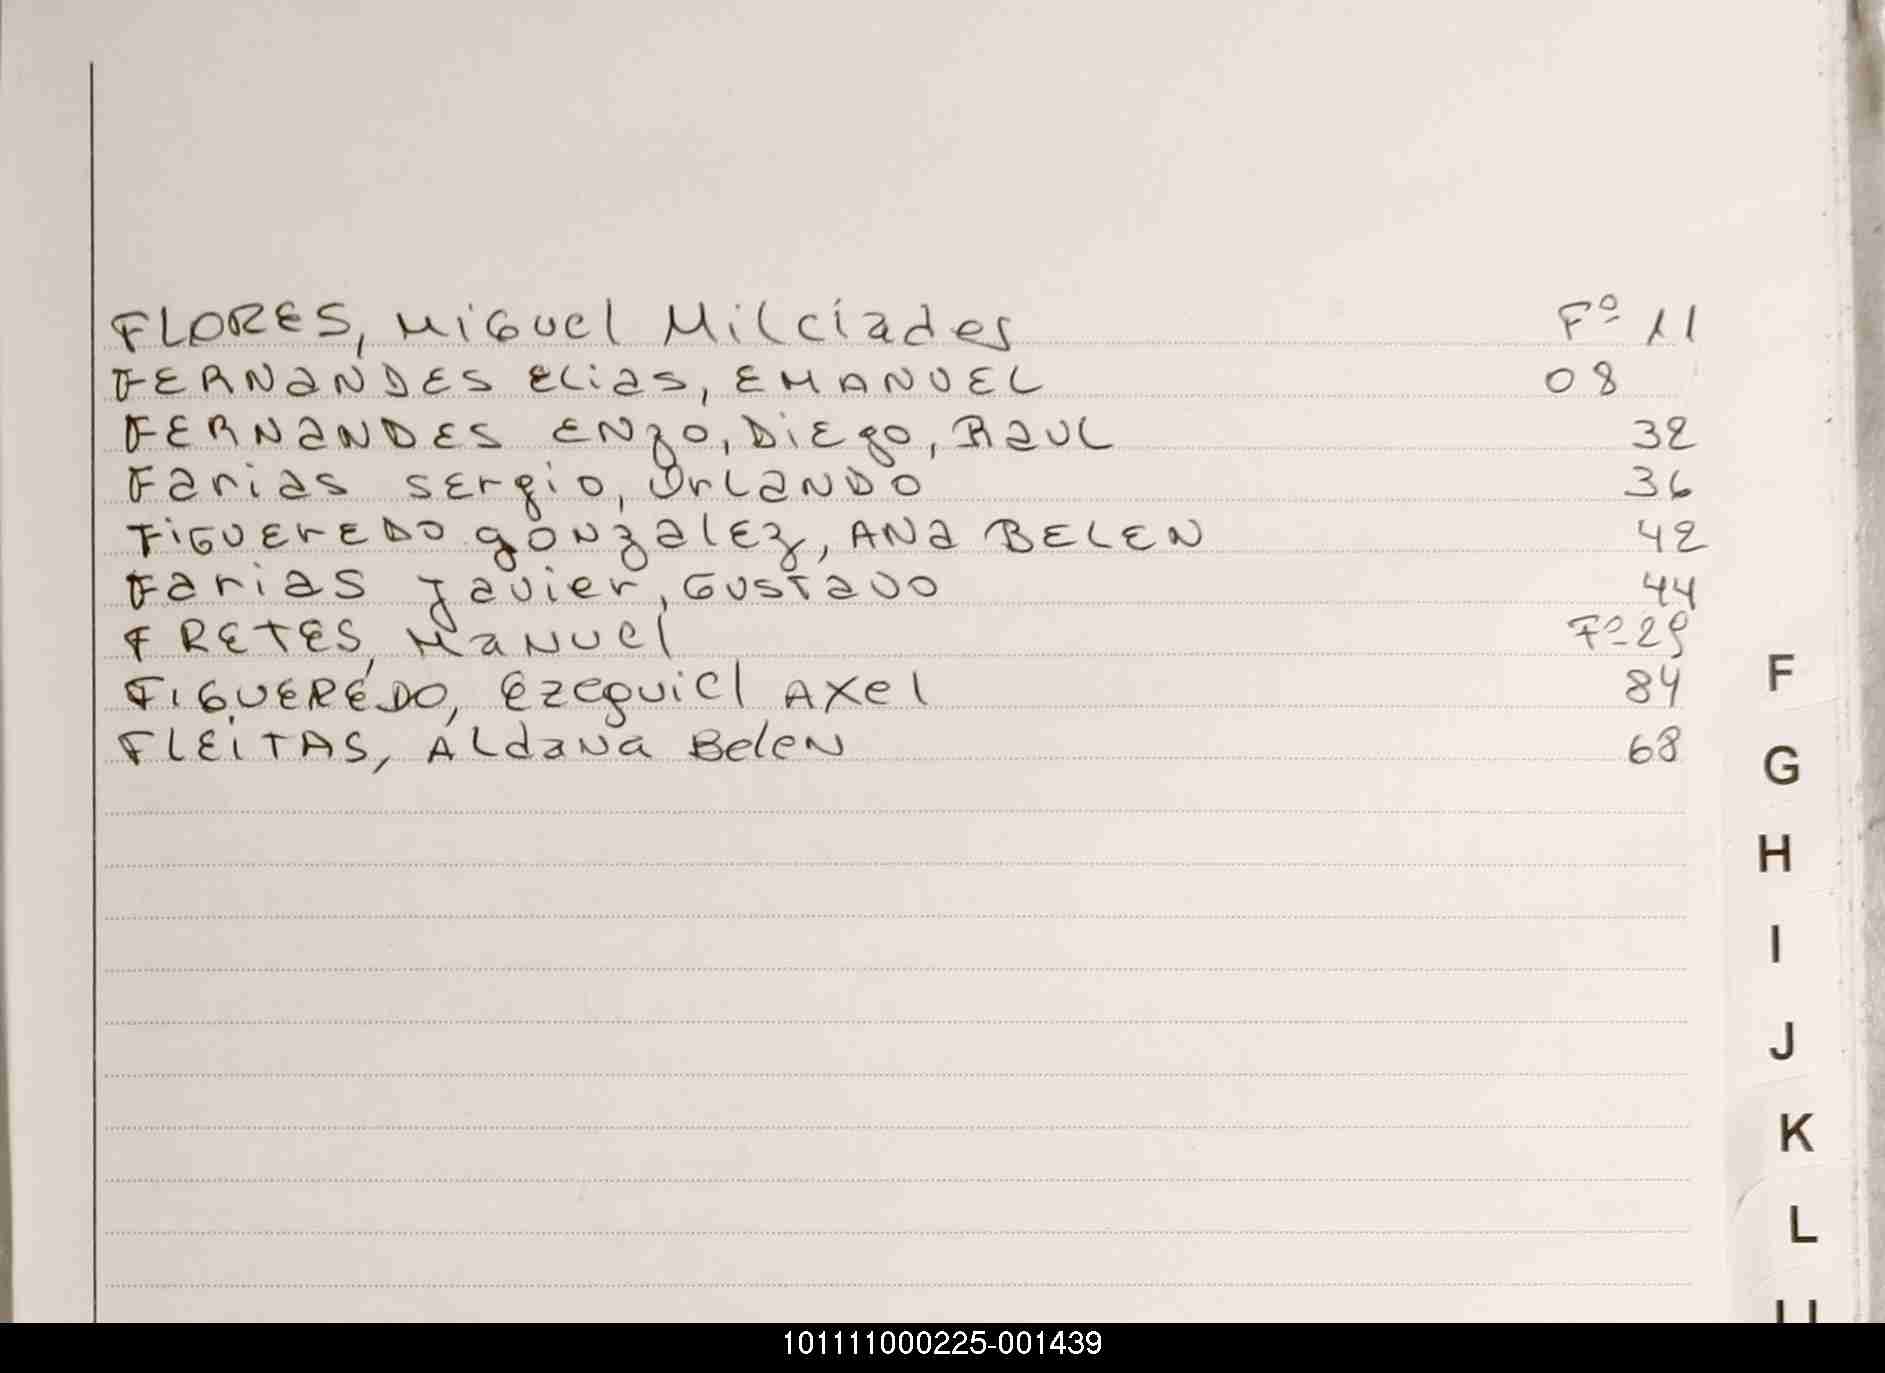 FLORES, Miguel Milciades Fº 11
FERNANDES Elias, EMANUEL 08
FERNANDES ENzo, Diego, RAUL 32
Farias Sergio, OrLANDO 36
FiGUEREDO gonzalez, ANA BELEN 42
Farias Javier, GUSTAVO 44
FRETES, Manuel Fº 29
FIGUEREDO, Ezequiel Axel 84
FLEiTAS, Aldana Belen 68
F
G
H
I
J
K
L
101111000225-001439